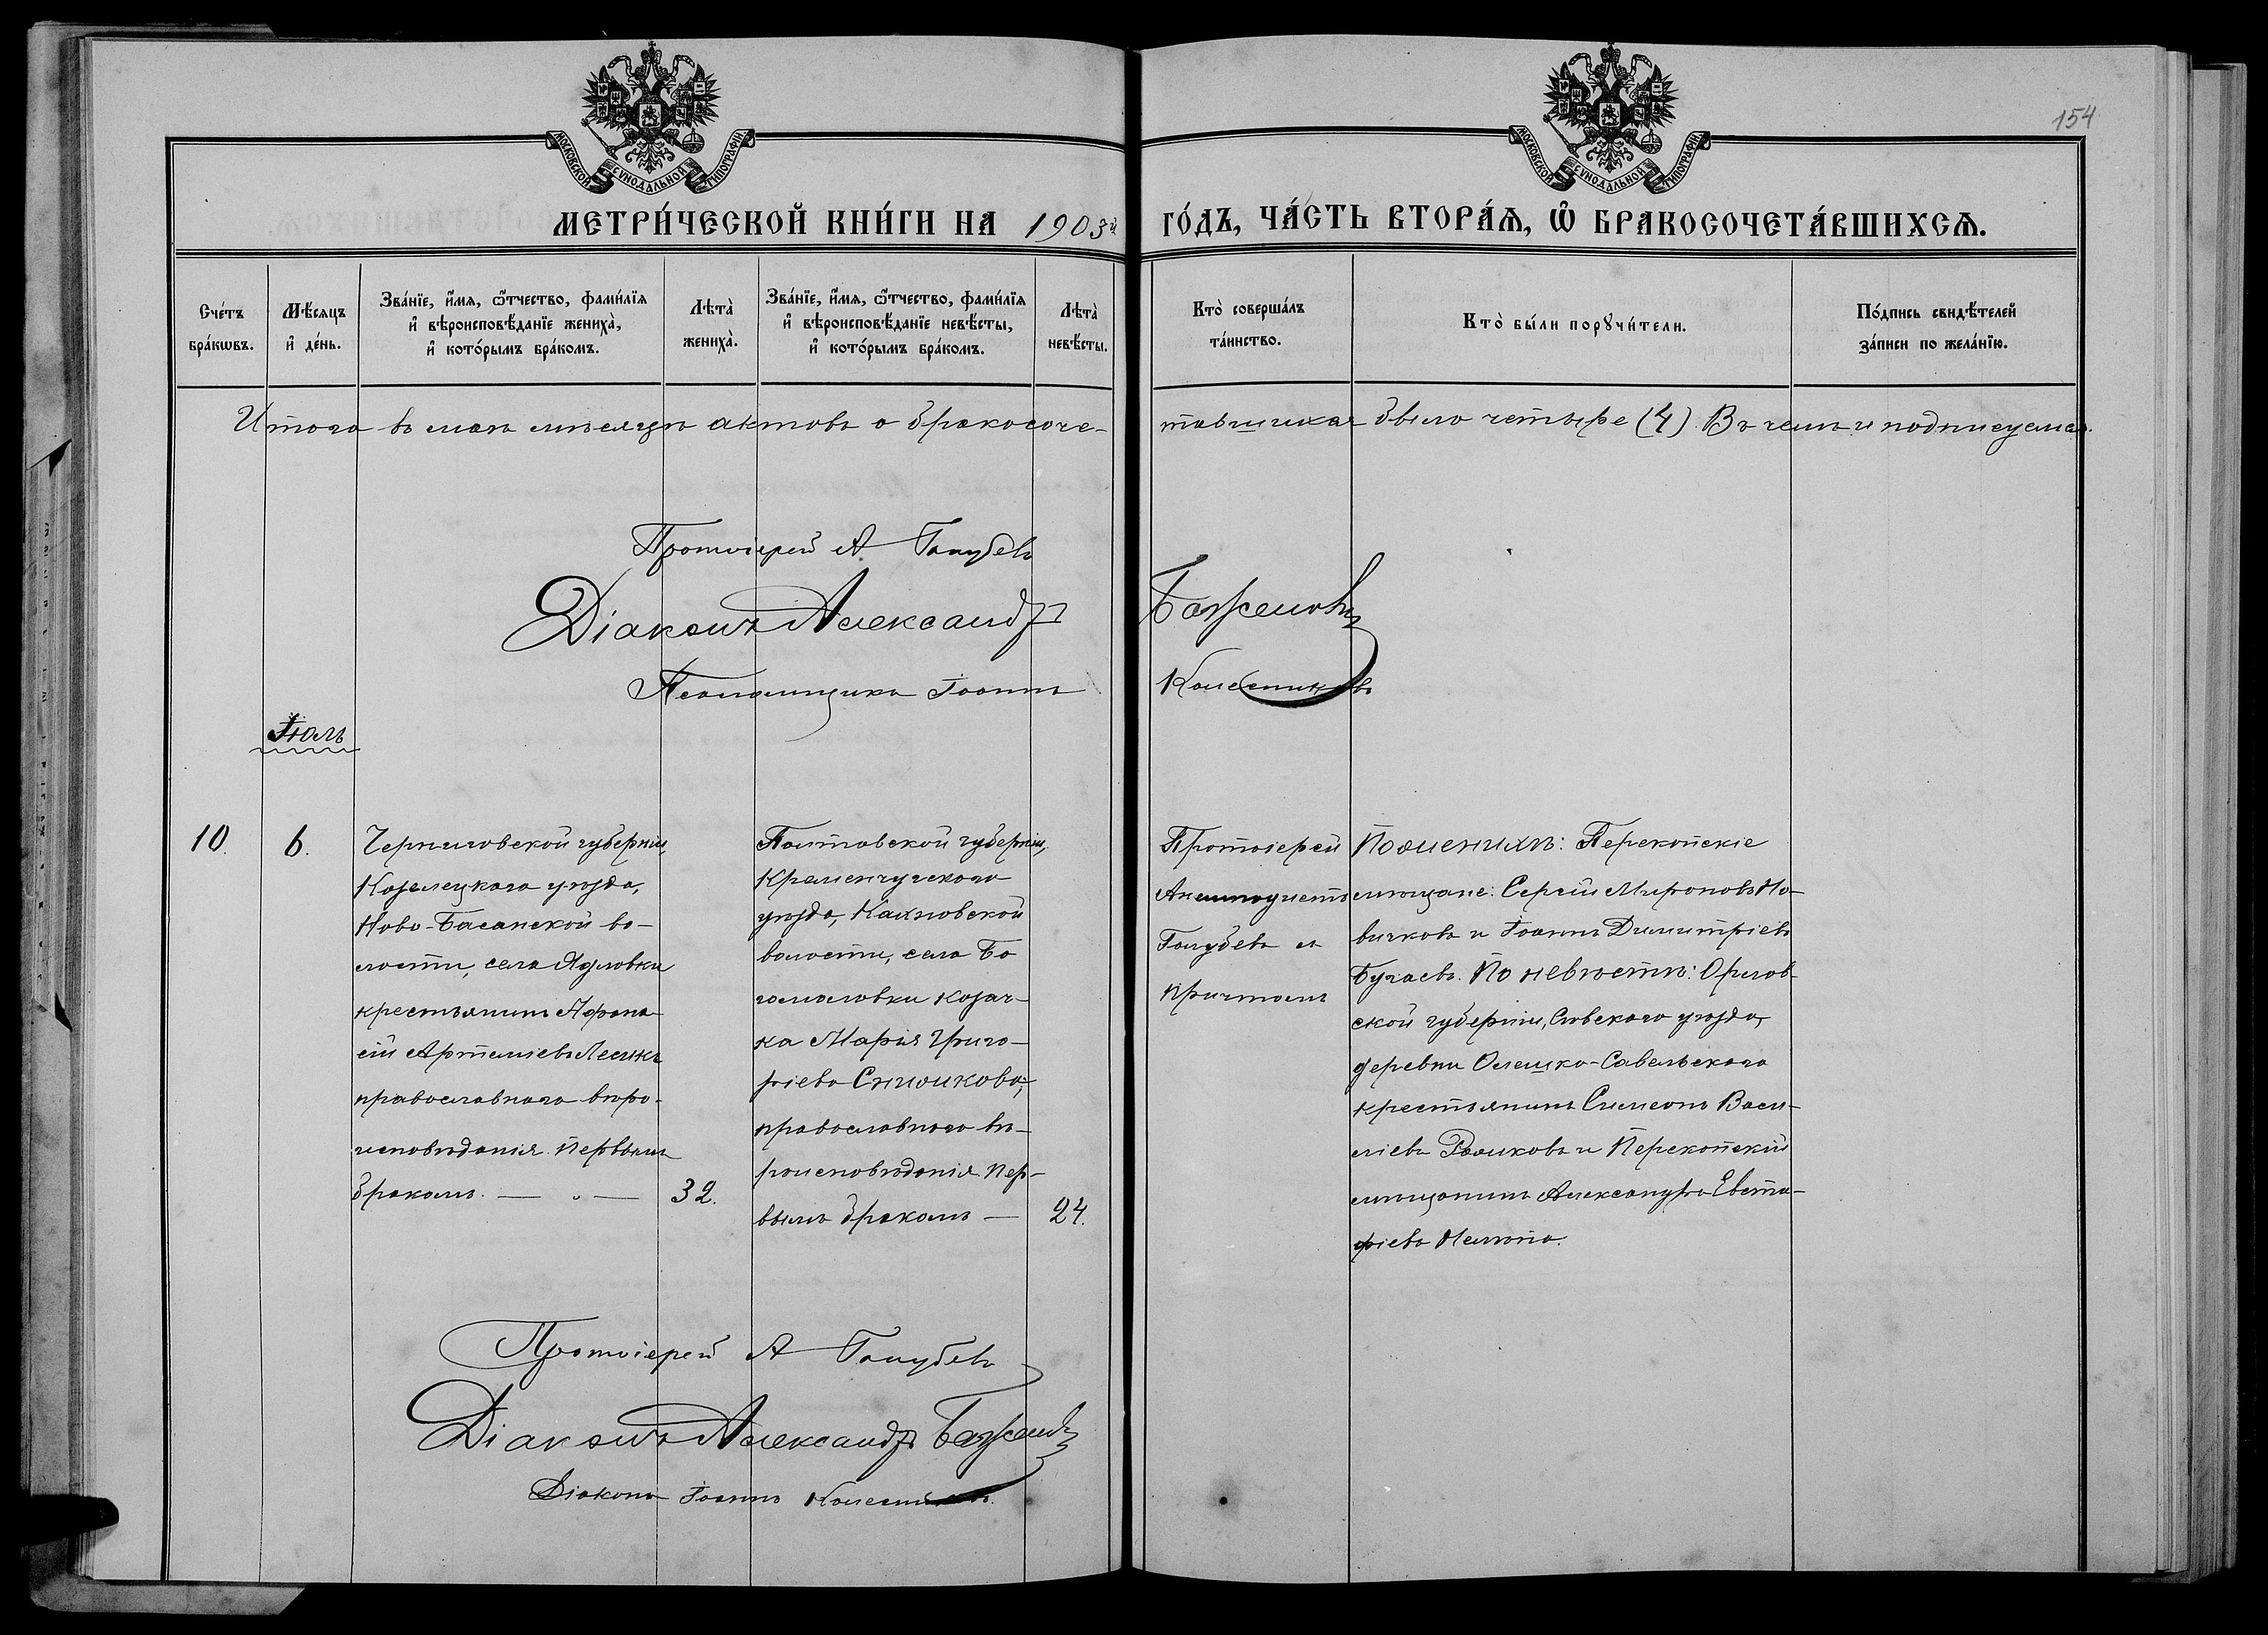 154
МОСКОВСКОЙ СУНОДАЛЬНОЙ ТИПОГРАФІИ
МОСКОВСКОЙ СУНОДАЛЬНОЙ ТИПОГРАФІИ
МЕТРИ́ЧЕСКОЙ КНИ́ГИ НА 1903й ГО́ДЪ, ЧА́СТЬ ВТОРА́Ѧ, Ѽ БРАКОСОЧЕТА́ВШИХСѦ.
Сче́тъ
бра́кѡвъ.
Мѣ́сяцъ
и҆ де́нь.
Зва́нїе, и҆́мѧ, ѻ҆́тчество, фами́лїѧ
и҆ вѣроисповѣ́данїе жениха̀,
и҆ кото́рымъ бра́комъ.
Лѣта̀
жениха̀.
Зва́нїе, и҆́мѧ, ѻ҆́тчество, фами́лїѧ
и҆ вѣроисповѣ́данїе невѣ́сты,
и҆ кото́рымъ бра́комъ.
Лѣта̀
невѣ́сты.
Кто̀ соверша́лъ
та́инство.
Кто̀ бы́ли порꙋчи́тели.
По́дпись свидѣ́телей
за́писи по жела́нїю.
Итого въ маѣ мѣсяцѣ актовъ о бракосоче-
тавшихся было четыре (4). Въ чемъ и подписуемся.
Протоіерей А Голубевъ
Діаконъ Александръ Баженовъ
Псаломщикъ Іоаннъ Колесниковъ
Іюль
10.
6.
Черниговской губерніи,
Козелецкаго уѣзда,
Ново-Басанской во-
лости, села Ядловки
крестьянинъ Афана-
сій Артеміевъ Лесикъ
православнаго вѣро-
исповѣданія. Первымъ
бракомъ. — „ —
32.
Полтавской губерніи,
Кременчугскаго
уѣзда, Кахновской
волости, села Бо
гомоловки козач-
ка Марія Григо-
ріева
православнаго вѣ-
роисповѣданія. Пер-
вымъ бракомъ —
24.
Протоіерей
Голубевъ съ
причтомъ
По женихѣ: Перекопскіе
мѣщане: Сергій Мироновъ Но-
вичковъ и Іоаннъ Димитріевъ
Бугаевъ. По невѣстѣ: Орлов-
ской губерніи, Сѣвскаго уѣзда,
деревни Олешко-Савельскаго
крестьянинъ Симеонъ Васи-
ліевъ и Перекопскій
мѣщанинъ Александръ Евста-
фіевъ
Протоіерей А Голубевъ
Діаконъ Александръ Баженовъ
Діаконъ Іоаннъ Колесниковъ.